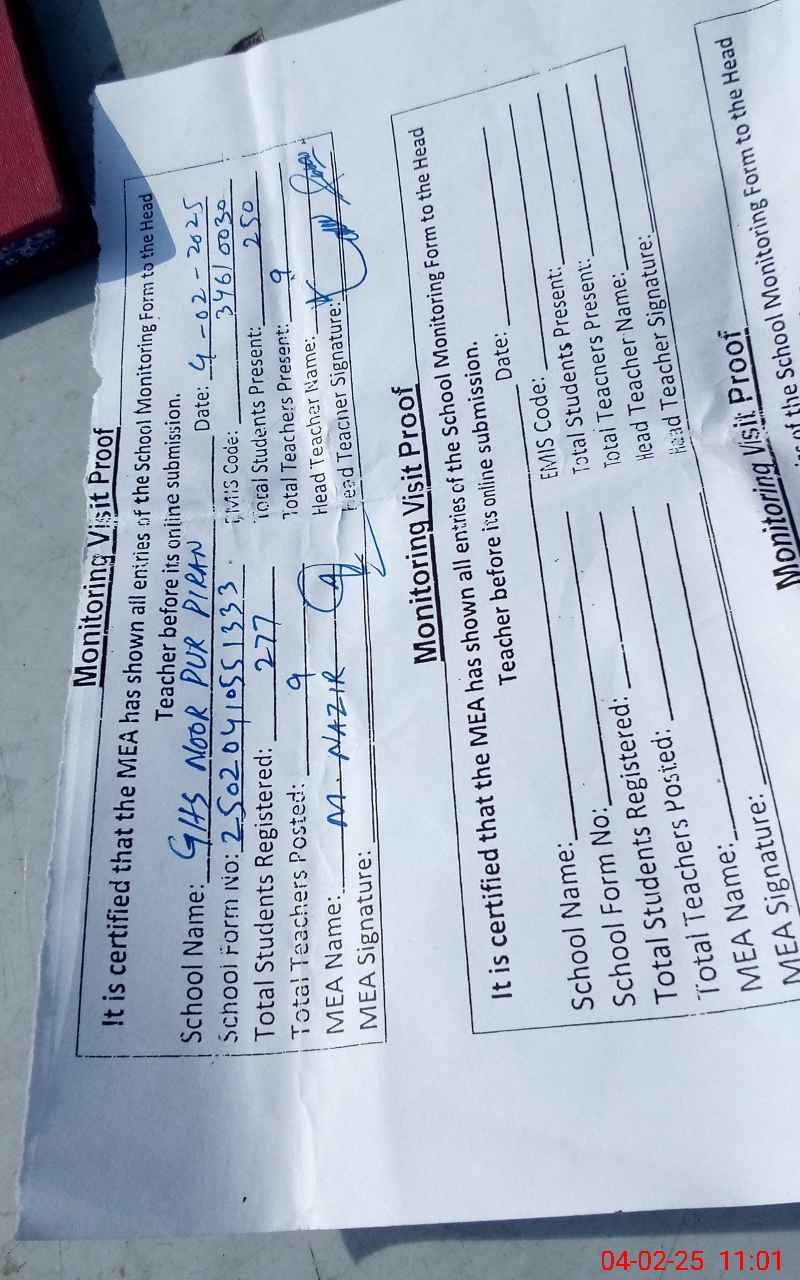 Monitoring Visit Proof
It is certified that the MEA has shown all entries of the School Monitoring Form to the Head
Teacher before its online submission.
School Name: GHS NOOR PUR PIRAN Date: 4-02-2025
School Form No: 2502041051333 EMIS Code: 39610030
Total Students Registered: 277 Total Students Present: 250
Total Teachers Posted: 9 Total Teachers Present: 9
MEA Name: M. NAZIR Head Teacher Name:
MEA Signature: Head Teacher Signature:
Monitoring Visit Proof
It is certified that the MEA has shown all entries of the School Monitoring Form to the Head
Teacher before its online submission.
School Name: Date:
School Form No: EMIS Code:
Total Students Registered: Total Students Present:
Total Teachers Posted: Total Teachers Present:
MEA Name: Head Teacher Name:
MEA Signature: Head Teacher Signature:
Monitoring Visit Proof
of the School Monitoring Form to the Head
04-02-25 11:01